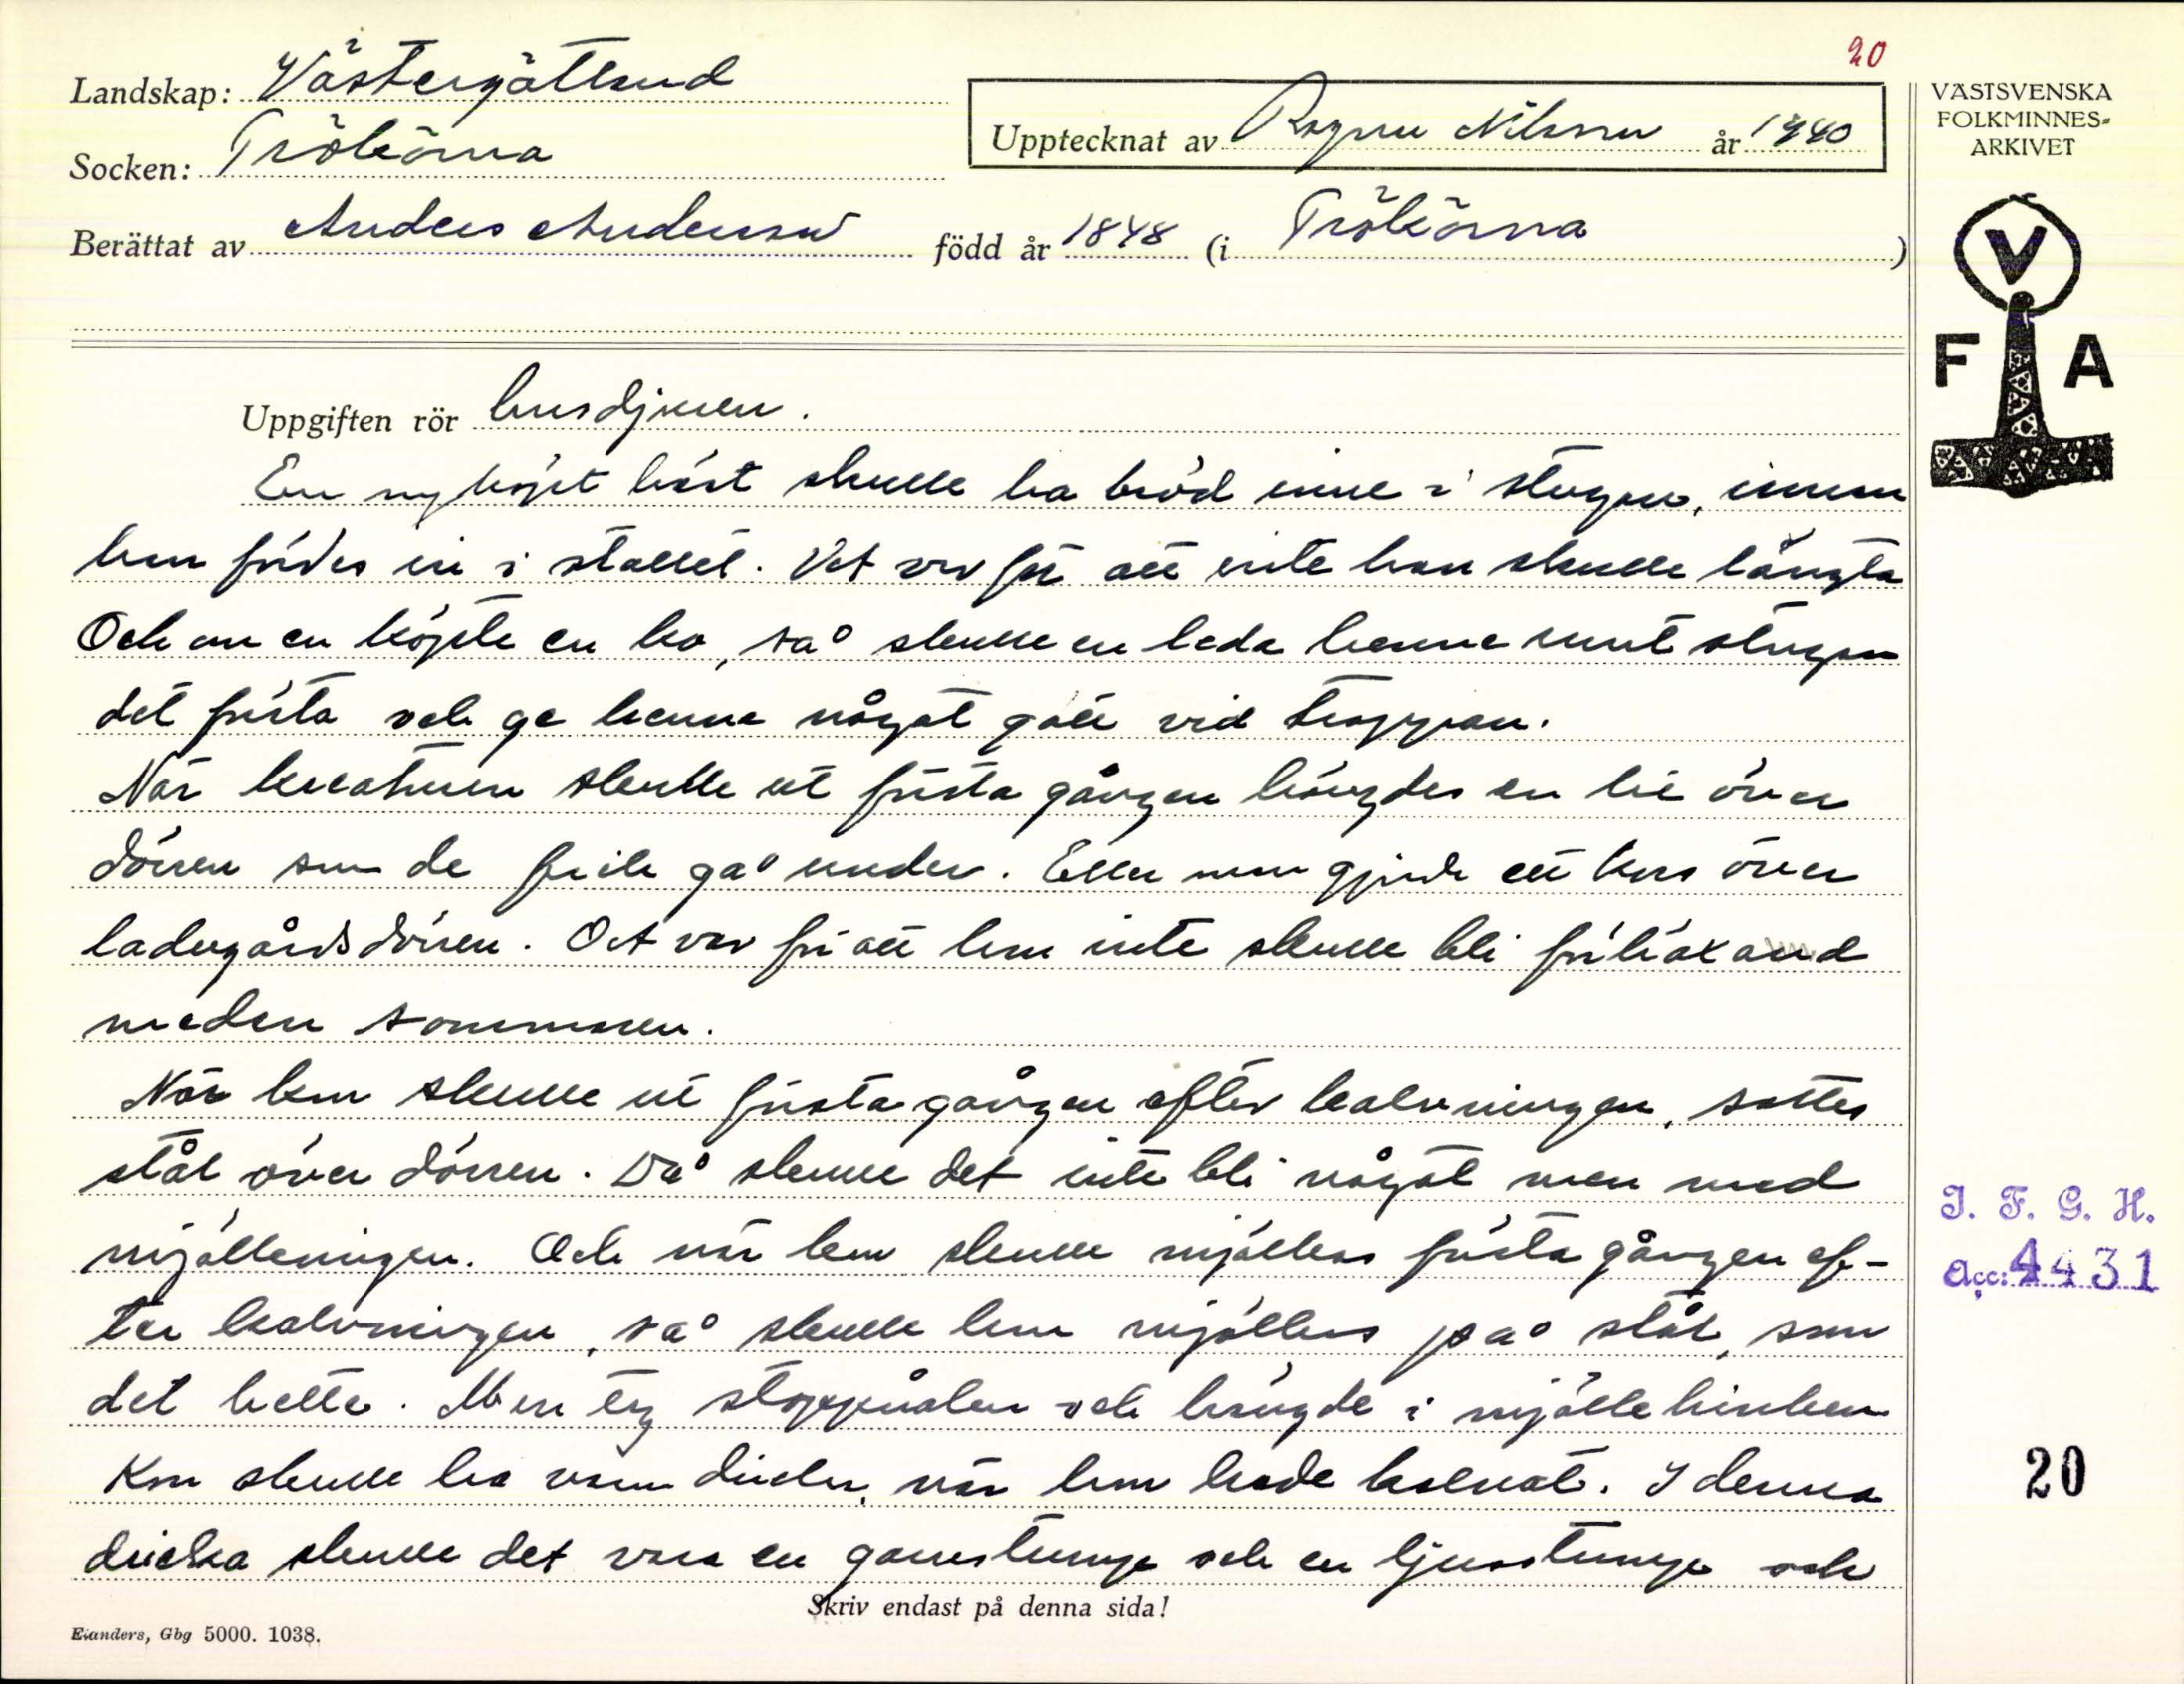 20
Landskap: Västergötland
Socken: Trökörna
Upptecknat av Ragnar Nilsson år 1940
Berättat av Anders Andersson född år 1848 (i Trökörna)
VÄSTSVENSKA
FOLKMINNES-
ARKIVET
V
F A
Uppgiften rör husdjuren.
En nyköpt häst skulle ha bröd inne i stugan, innan
han fördes in i stallet. Det var för att inte han skulle längta
Och om en köpte en ko, så skulle en leda henne runt stugan
det första och ge henne något gott vid trappan.
När kreaturen skulle ut första gången hängdes en lie över
dörren som de fick gå under. Eller man gjorde ett kors över
ladugårdsdörren. Det var för att hon inte skulle bli förhäxand
meden sommaren.
När kon skulle ut första gången efter kalvningen, sattes
stål över dörren. Då skulle det inte bli något men med
mjölkningen. Och när hon skulle mjölkas första gången ef-
ter kalvningen, så skulle hon mjölkas på stål, som
det hette. Men tog stoppnålen och hängde i mjölkehinken
Kon skulle ha varm dricka, när hon hade kalvat. I denna
dricka skulle det vara en garnstump och en ljusstump och
Skriv endast på denna sida!
Elanders, Gbg 5000. 1038.
I. F. G. H.
Acc: 4431
20